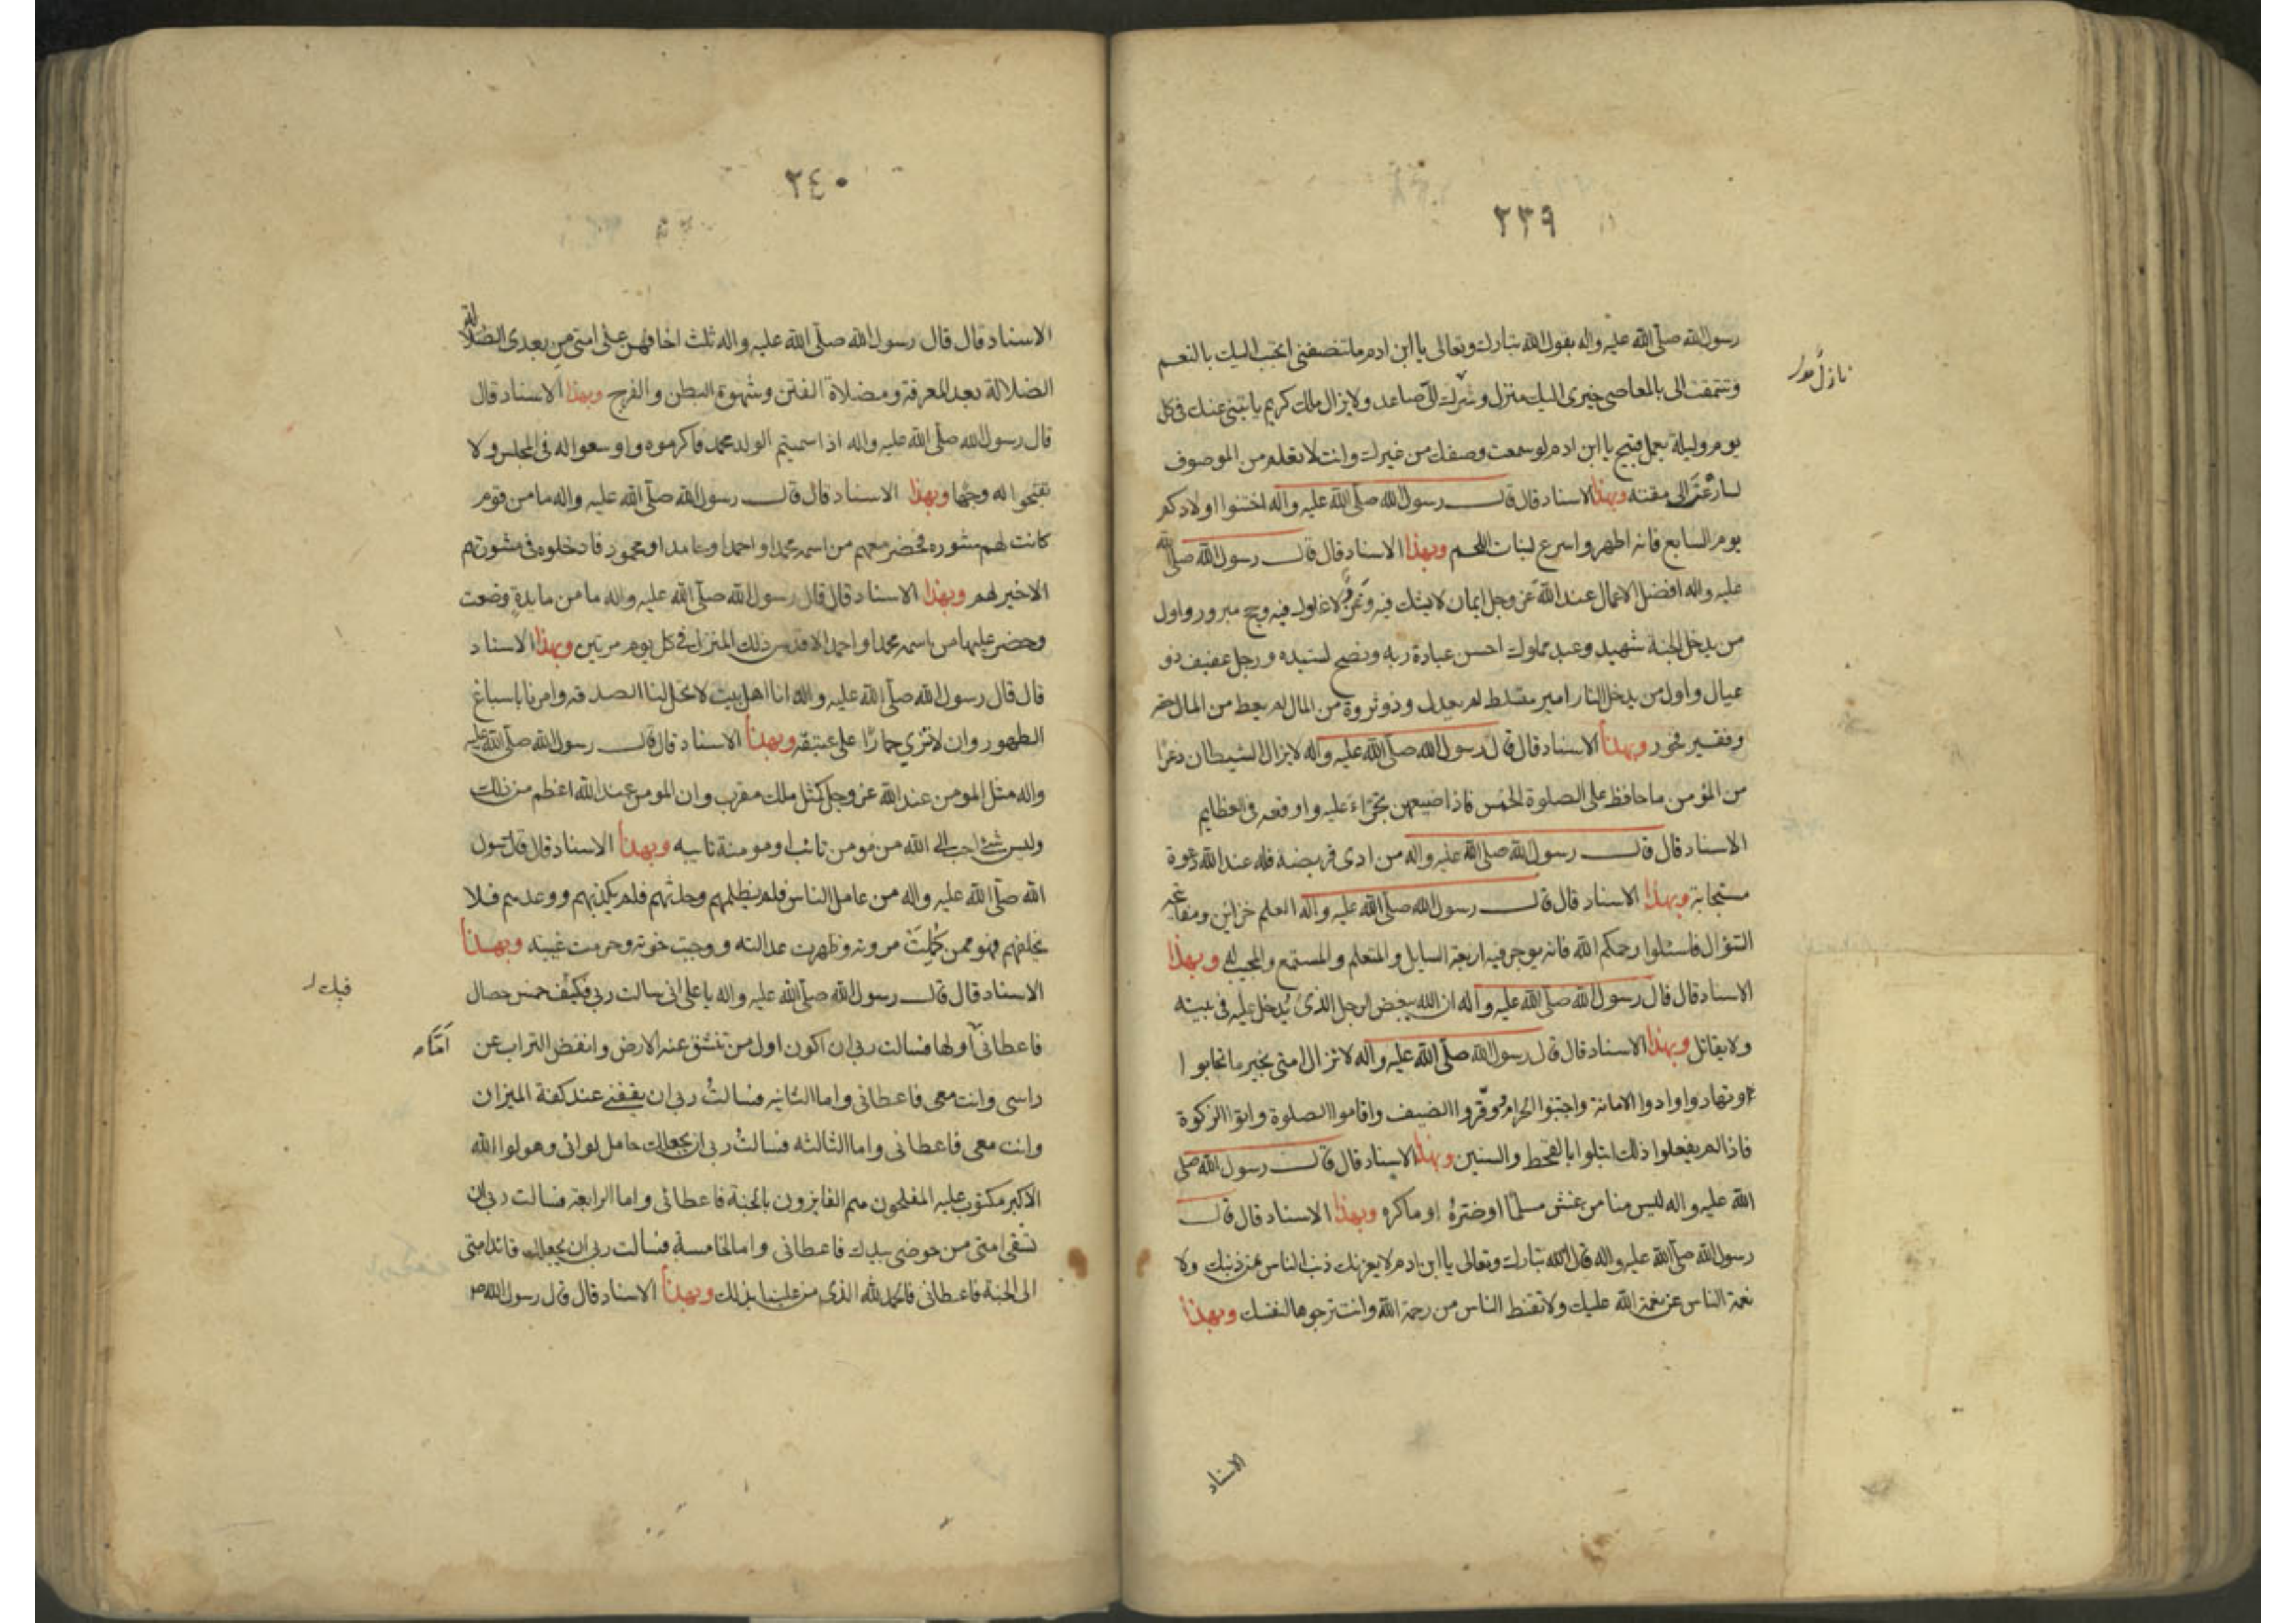 ٢٣٩
رسول الله صلّى الله عليه واله يقول الله تبارك وتعالى يا ابن ادم ما تنصفنى اتحبب اليك بالنعم
وتتمقت الى بالمعاصى خيرى اليك منزل وشرك الىّ صاعد ولا يزال ملك كريم ياتينى عنك فى كل
يوم وليلة بعمل قبيح يا ابن ادم لو سمعت وصفك من غيرك وانت لا تعلم من الموصوف
لسارعت الى مقته وبهذا الاسناد قال قال رسول الله صلّى الله عليه واله اختنوا اولادكم
يوم السابع فانه اطهر واسرع لنبات اللحم وبهذا الاسناد قال قال رسول الله صلّى الله
عليه واله افضل الاعمال عند الله عز وجل ايمان لا شك فيه وغزو لا غلول فيه وحج مبرور واول
من يدخل الجنة شهيد وعبد مملوك احسن عبادة ربه ونصح لسيده ورجل عفيف ذو
عيال واول من يدخل النار امير متسلط لم يعدل وذو ثروة من المال لم يعط من المال حقه
وفقير فخور وبهذا الاسناد قال قال رسول الله صلّى الله عليه واله لا يزال الشيطان ذعرا
من المؤمن ما حافظ على الصلوة الخمس فاذا ضيعهن تجرّاء عليه واوقعه فى العظايم
الاسناد قال قال رسول الله صلّى الله عليه واله من ادى فريضة فله عند الله دعوة
مستجابة وبهذا الاسناد قال قال رسول الله صلّى الله عليه واله العلم خزاين ومفاتحه
السؤال فاسئلوا رحمكم الله فانه يوجر فيه اربعة السايل والمتعلم والمستمع والمجيب له وبهذا
الاسناد قال قال رسول الله صلّى الله عليه واله ان الله يبغض الرجل الذى يُدخل عليه فى بيته
ولا يقاتل وبهذا الاسناد قال قال رسول الله صلّى الله عليه واله لا تزال امتى بخير ما تحابوا
وتهادوا وادوا الامانة واجتنبوا الحرام ووقّروا الضيف واقاموا الصلوة واتوا الزكوة
فاذا لم يفعلوا ذلك ابتلوا بالقحط والسنين وبهذا الاسناد قال قال رسول الله صلّى
الله عليه واله ليس منا من غش مسلمًا او ضرّه او ماكره وبهذا الاسناد قال قال
رسول الله صلّى الله عليه واله قال الله تبارك وتعالى يا ابن ادم لا يغرنك ذنب الناس عن ذنبك ولا
نعمة الناس عن نعمة الله عليك ولا تقنط الناس من رحمة الله وانت ترجوها لنفسك وبهذا
الاسناد
٢٤٠
الاسناد قال قال رسول الله صلّى الله عليه واله ثلث اخافهن على امتى من بعدى
الضلالة بعد المعرفة ومضلاة الفتن وشهوة البطن والفرج وبهذا الاسناد قال
قال رسول الله صلّى الله عليه واله اذا سميتم الولد محمد فاكرموه واوسعوا له فى المجلس ولا
تقبحوا له وجها وبهذا الاسناد قال قال رسول الله صلّى الله عليه واله ما من قوم
كانت لهم مشوره فحضر معهم من اسمه محمد او احمد او حامد او محمود فادخلوه فى مشورتهم
الا خير لهم وبهذا الاسناد قال قال رسول الله صلّى الله عليه واله ما من مايدة وضعت
وحضر عليها من اسمه محمد او احمد الا قدس ذلك المنزل فى كل يوم مرتين وبهذا الاسناد
قال قال رسول الله صلّى الله عليه واله انا اهل بيت لا تحل لنا الصدقه وامرنا باسباغ
الطهور وان لا ننزي حمارًا على عتيقه وبهذا الاسناد قال قال رسول الله صلّى الله عليه
واله مثل المومن عند الله عز وجل كمثل ملك مقرب وان المومن عند الله اعظم من ذلك
وليس شئ احب الى الله من مومن تائب او مومنة تايبه وبهذا الاسناد قال قال رسول
الله صلّى الله عليه واله من عامل الناس فلم يظلمهم وحدثهم فلم يكذبهم ووعدهم فلا
يخلفهم فهو ممن كملت مروته وظهرت عدالته ووجبت اخوته وحرمت غيبته وبهذا
الاسناد قال قال رسول الله صلّى الله عليه واله يا على انى سالت ربى فيك خمس خصال
فاعطانى اولها فسالت ربى ان اكون اول من تنشق عنه الارض وانفض التراب عن
راسى وانت معى فاعطانى واما الثانيه فسالتُ ربى ان يقفنى عند كفة الميزان
وانت معى فاعطانى واما الثالثه فسالتُ ربى ان يجعلك حامل لوائى وهو لواء الله
الاكبر مكتوب عليه المفلحون هم الفايزون بالجنة فاعطانى واما الرابعة فسالت ربى ان
تسقى امتى من حوضى بيدك فاعطانى واما الخامسة فسالت ربى ان يجعلك قائد امتى
الى الجنة فاعطانى فالحمد لله الذى من علينا بذلك وبهذا الاسناد قال قال رسول الله ص